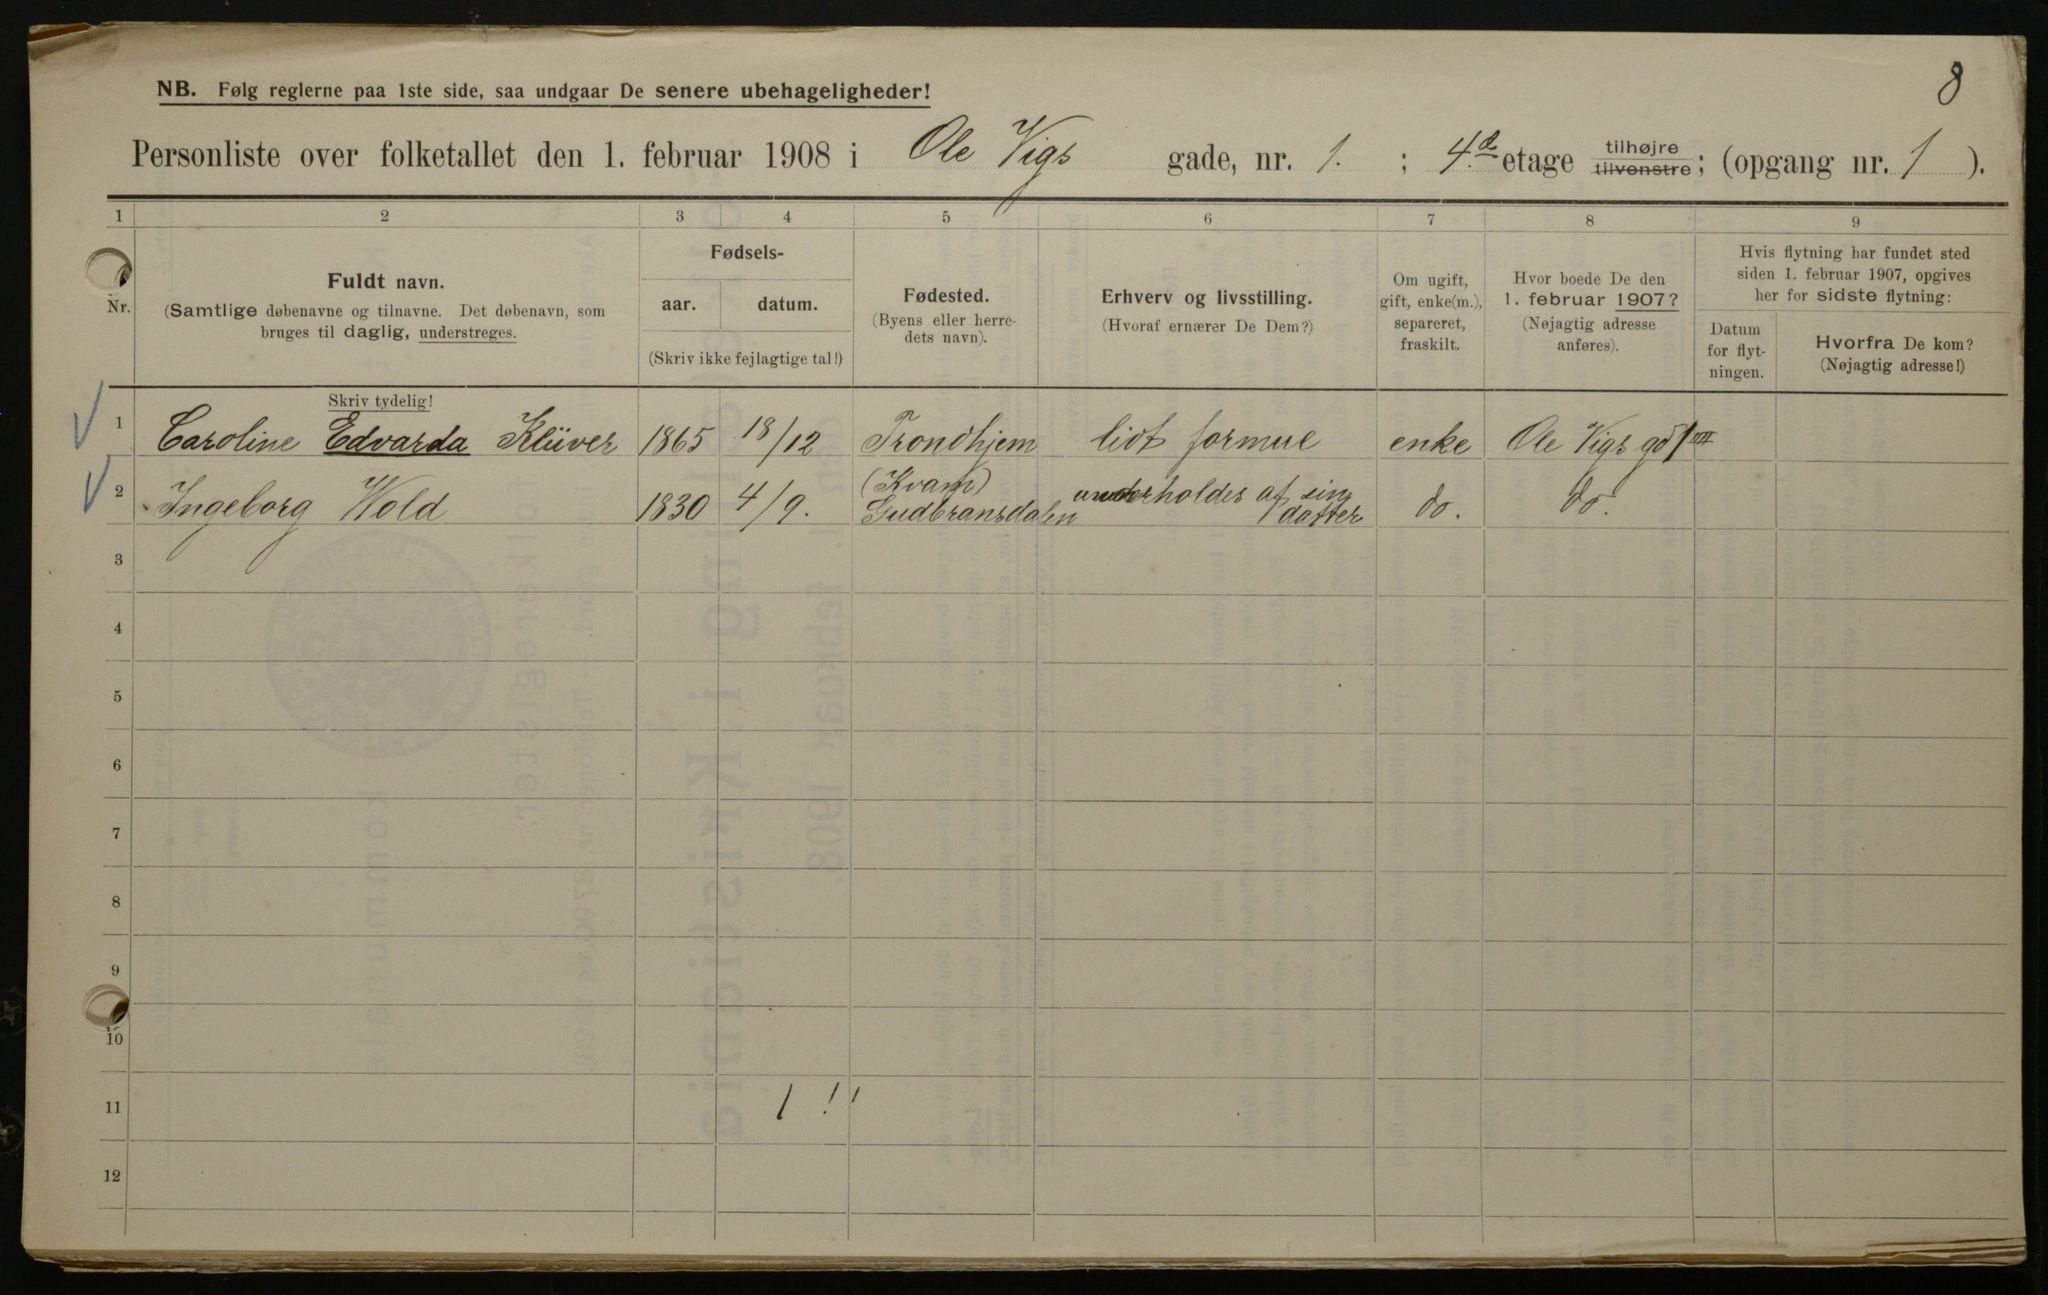 8
NB. Følg reglerne paa 1ste side, saa undgaar De senere ubehageligheder!
Personliste over folketallet den 1. februar 1908 i Ole Vigs gade, nr. 1. ; 4.de etage tilhøjre tilvenstre; (opgang nr. 1 ).
1 2 3 4 5 6 7 8 9
Nr.
Fuldt navn.
(Samtlige døbenavne og tilnavne. Det døbenavn, som
bruges til daglig, understreges.
Fødsels-
aar. datum.
(Skriv ikke fejlagtige tal!)
Fødested.
(Byens eller herre-
dets navn).
Erhverv og livsstilling.
(Hvoraf ernærer De Dem?)
Om ugift,
gift, enke(m.),
separeret,
fraskilt.
Hvor boede De den
1. februar 1907?
(Nøjagtig adresse
anføres).
Hvis flytning har fundet sted
siden 1. februar 1907, opgives
her for sidste flytning:
Datum
for flyt-
ningen.
Hvorfra De kom?
(Nøjagtig adresse!)
Skriv tydelig!
1 Caroline Edvarda Klüver 1865 18/12 Trondhjem lidt formue enke Ole Vigs gd 1 IIII
2 Ingeborg Wold 1830 4/9. (Kvam) Gudbransdalen underholdes af sin datter do. do.
3
4
5
6
7
8
9
10
11
12